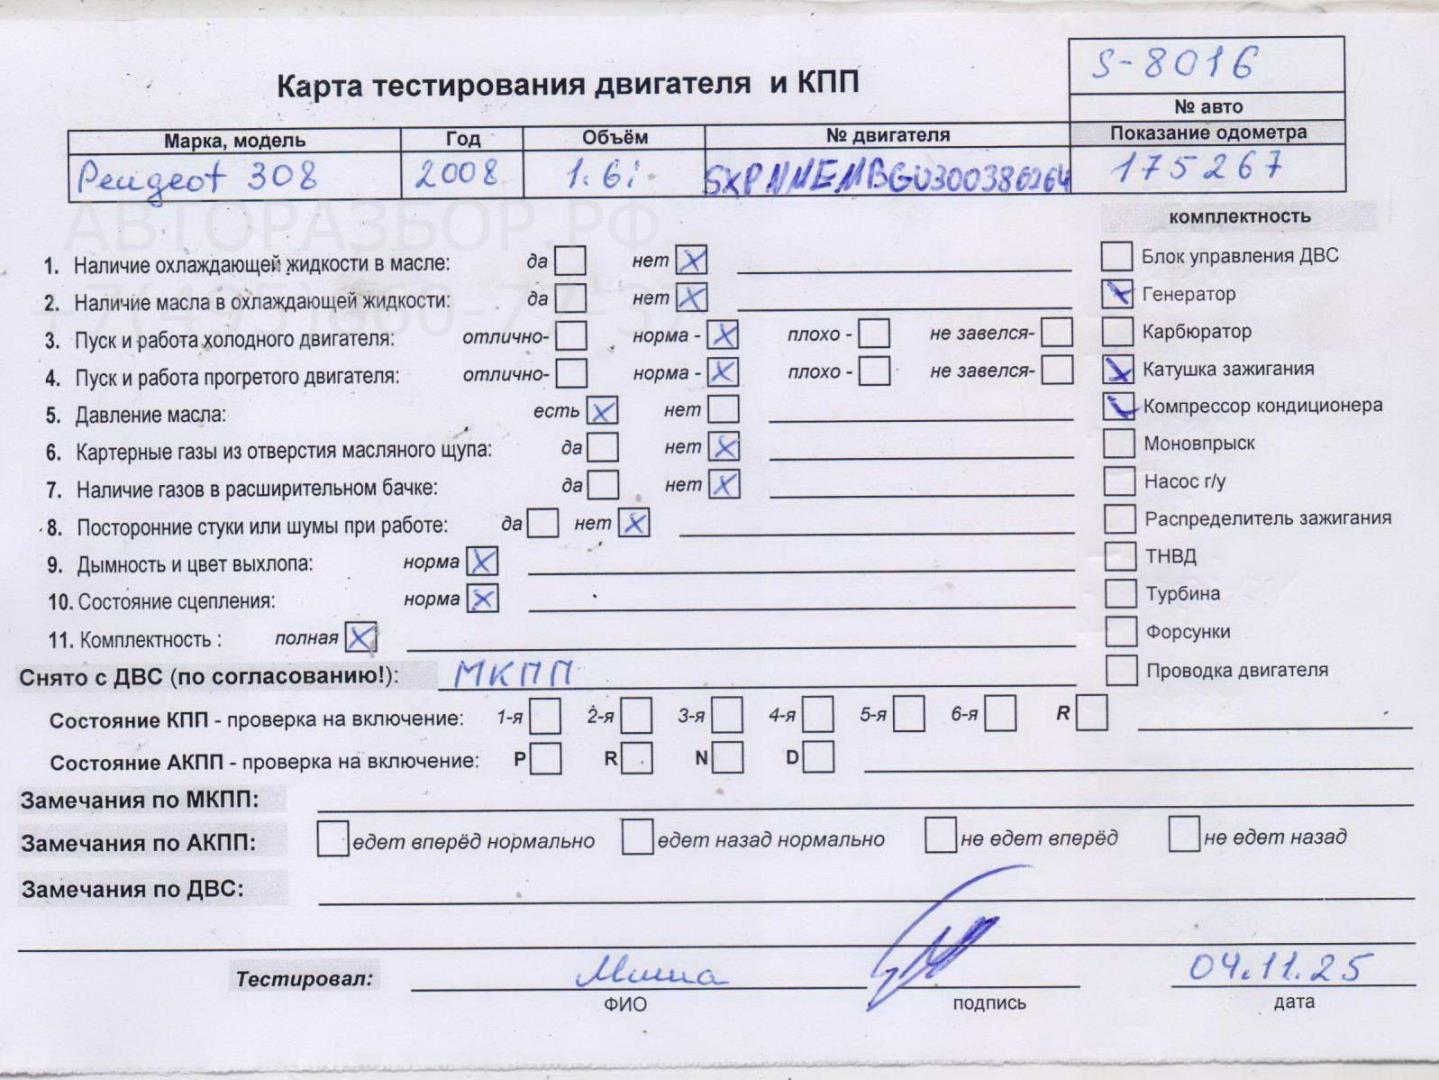 S-8016
Карта тестирования двигателя и КПП
№ авто
Марка, модель Год Объём № двигателя Показание одометра
Peugeot 308 2008 1.6i 175267
АВТОРАЗБОР.РФ
комплектность
1. Наличие охлаждающей жидкости в масле: да нет X
Блок управления ДВС
2. Наличие масла в охлаждающей жидкости: да нет X
Генератор X
3. Пуск и работа холодного двигателя: отлично- норма - X плохо - не завелся-
Карбюратор
4. Пуск и работа прогретого двигателя: отлично- норма - X плохо - не завелся-
Катушка зажигания X
5. Давление масла: есть X нет
Компрессор кондиционера
6. Картерные газы из отверстия масляного щупа: да нет X
Моновпрыск
7. Наличие газов в расширительном бачке: да нет X
Насос г/у
8. Посторонние стуки или шумы при работе: да нет X
Распределитель зажигания
9. Дымность и цвет выхлопа: норма X
ТНВД
10. Состояние сцепления: норма X
Турбина
11. Комплектность : полная X
Форсунки
Снято с ДВС (по согласованию!): МКПП
Проводка двигателя
Состояние КПП - проверка на включение: 1-я 2-я 3-я 4-я 5-я 6-я R
Состояние АКПП - проверка на включение: P R N D
Замечания по МКПП:
Замечания по АКПП: едет вперёд нормально едет назад нормально не едет вперёд не едет назад
Замечания по ДВС:
Тестировал: Миша 04.11.25
ФИО подпись дата